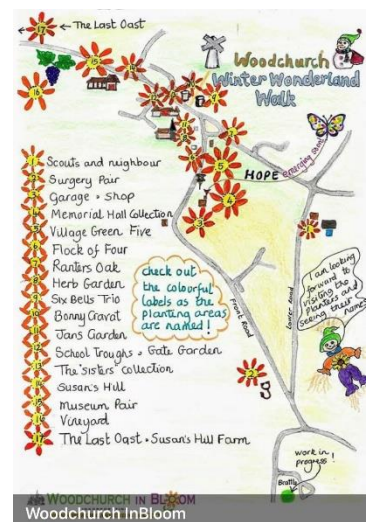 17
← The Last Oast
Woodchurch
Winter Wonderland
Walk
15
14
16
HOPE emerging soon!
5
4
3
1 Scouts and neighbour
2 Surgery Pair
3 Garage + shop
4 Memorial Hall Collection
5 Village Green Five
6 Flock of Four
7 Ranters Oak
8 Herb Garden
9 Six Bells Trio
10 Bonny Cravat
11 Jans Garden
12 School Troughs + Gate Garden
13 The 'Sisters' Collection
14 Susan's Hill
15 Museum Pair
16 Vineyard
17 The Last Oast + Susan's Hill Farm
check out
the colourful
labels as the
planting areas
are named!
Front Road
Lower Road
I am looking
forward to
visiting the
Planters and
seeing their
names
2
work in
progress!
Brattle
WOODCHURCH IN BLOOM
Woodchurch InBloom